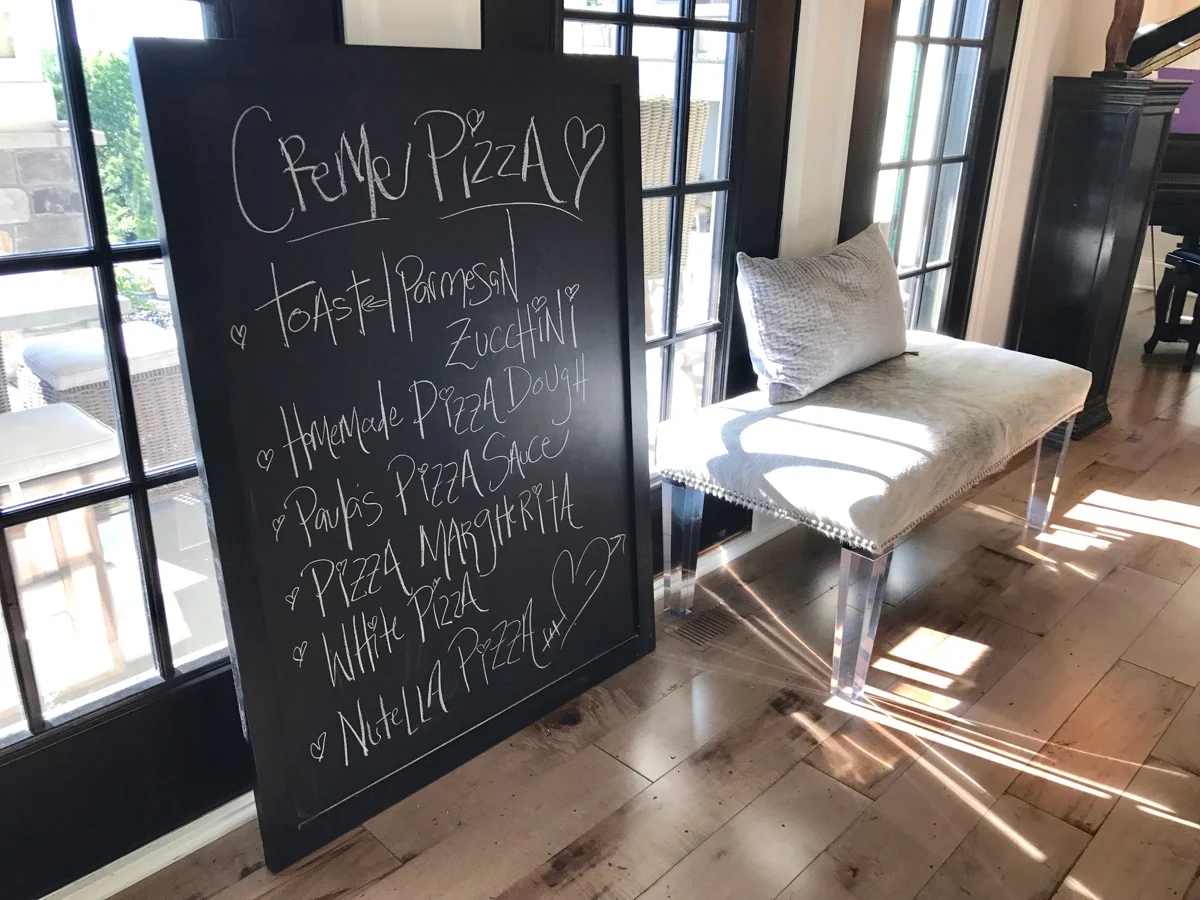 Creme Pizza
Toasted Parmesan
Zucchini
Homemade Pizza Dough
Paula's Pizza Sauce
Pizza Margherita
White Pizza
Nutella Pizza